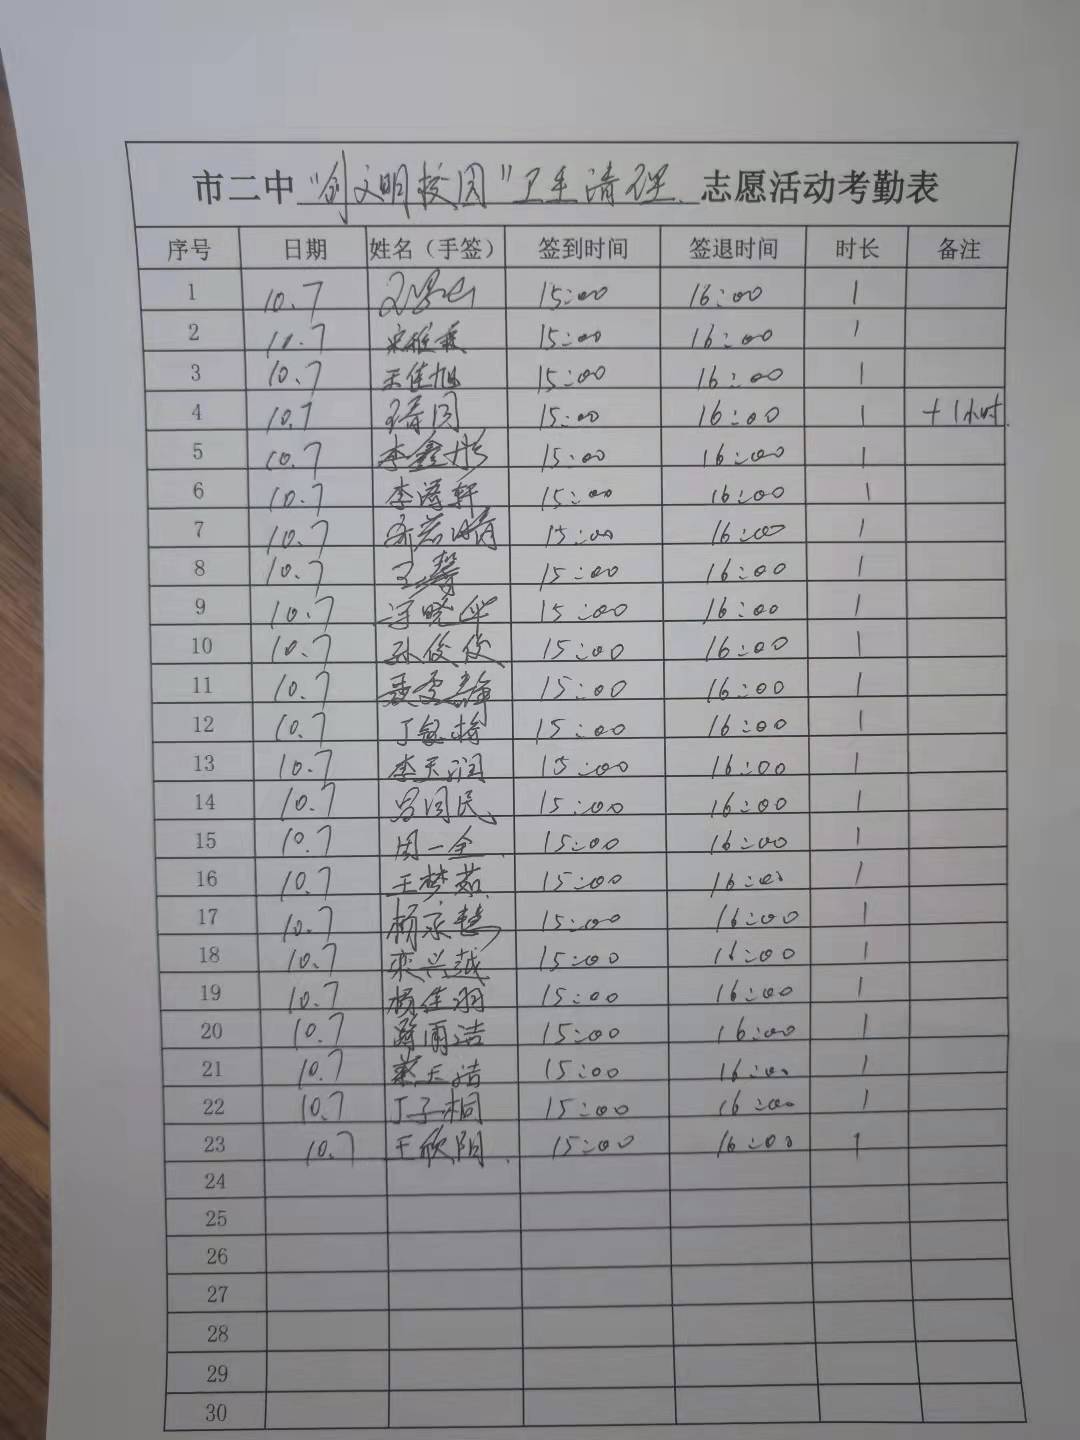 市二中"创文明校园"卫生清理 志愿活动考勤表
序号 日期 姓名（手签） 签到时间 签退时间 时长 备注
1 10.7 15:00 16:00 1
2 10.7 15:00 16:00 1
3 10.7 王佳旭 15:00 16:00 1
4 10.7 15:00 16:00 1 +1小时.
5 10.7 李鑫彤 15:00 16:00 1
6 10.7 李濤轩 15:00 16:00 1
7 10.7 15:00 16:00 1
8 10.7 王馨 15:00 16:00 1
9 10.7 15:00 16:00 1
10 10.7 孙俊俊 15:00 16:00 1
11 10.7 15:00 16:00 1
12 10.7 15:00 16:00 1
13 10.7 李天润 15:00 16:00 1
14 10.7 15:00 16:00 1
15 10.7 周一全 15:00 16:00 1
16 10.7 王梦茹 15:00 16:00 1
17 10.7 15:00 16:00 1
18 10.7 栾兴越 15:00 16:00 1
19 10.7 杨佳羽 15:00 16:00 1
20 10.7 雨洁 15:00 16:00 1
21 10.7 15:00 16:00 1
22 10.7 丁子桐 15:00 16:00 1
23 10.7 王欣阳. 15:00 16:00 1
24
25
26
27
28
29
30